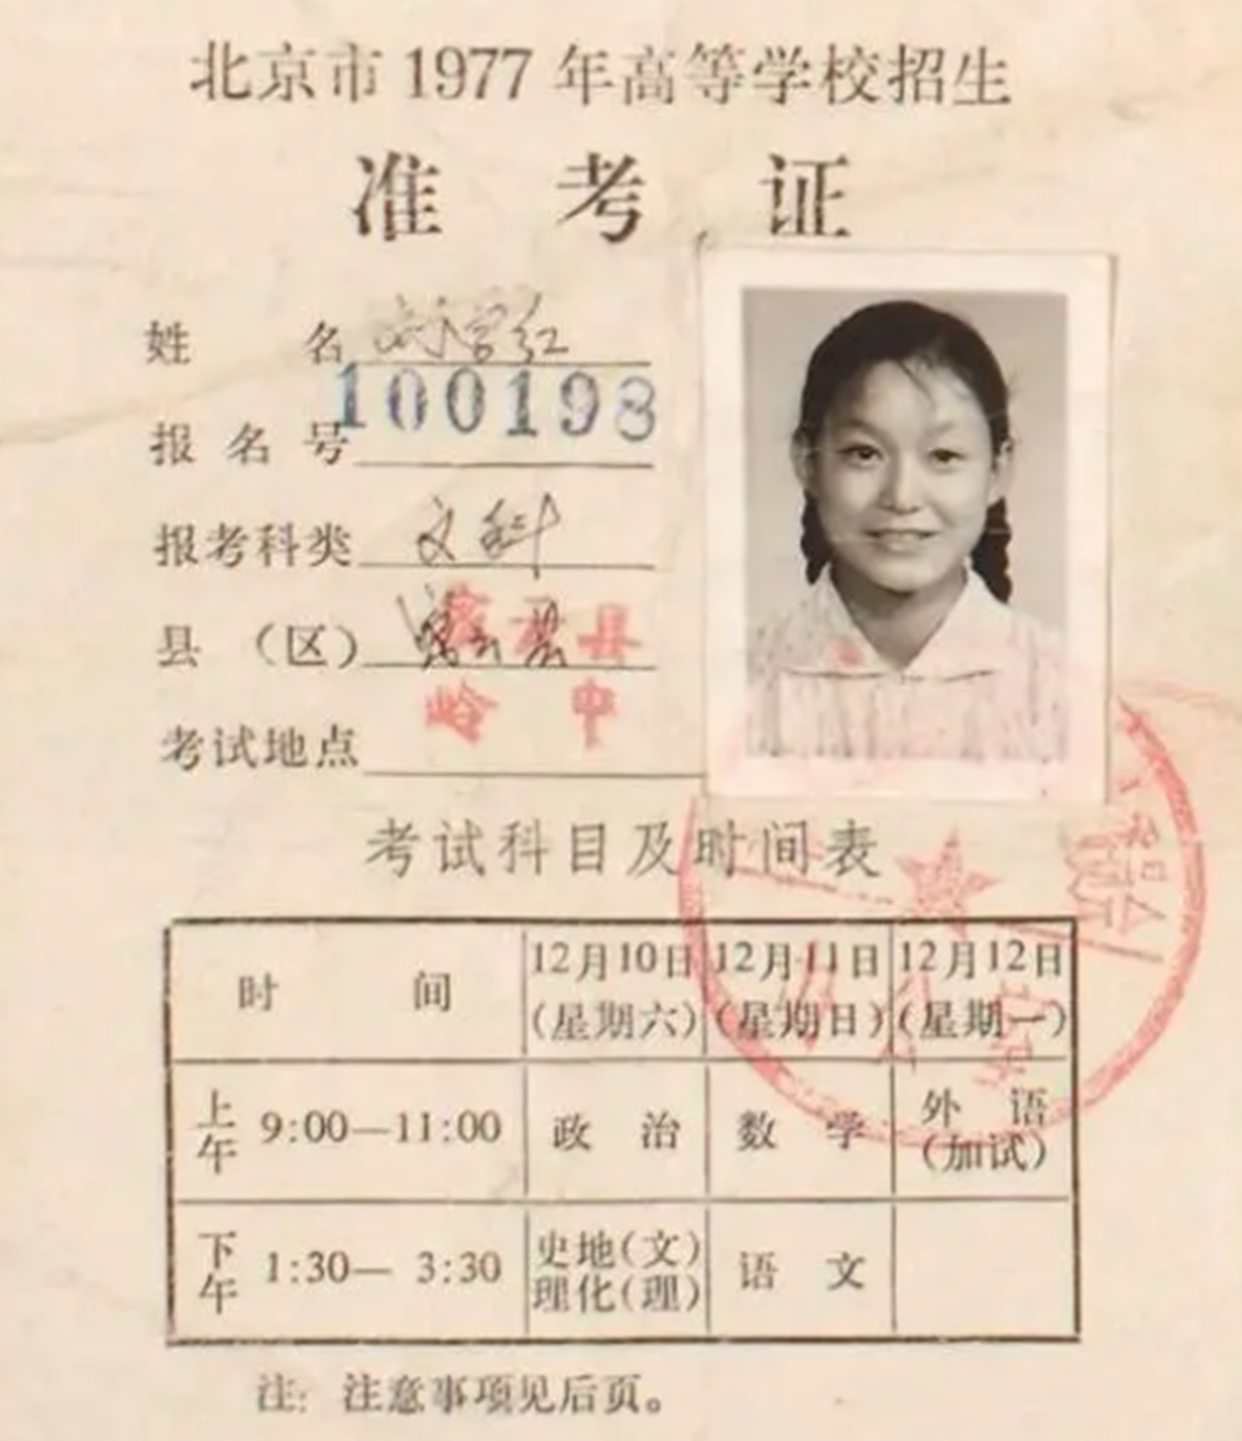 北京市1977年高等学校招生
准考证
姓名 刘学红
报名号 100193
报考科类 文科
县（区） 密云县
考试地点 岭中
考试科目及时间表
时间 12月10日（星期六） 12月11日（星期日） 12月12日（星期一）
上午 9:00—11:00 政治 数学 外语（加试）
下午 1:30—3:30 史地（文）理化（理） 语文
注：注意事项见后页。